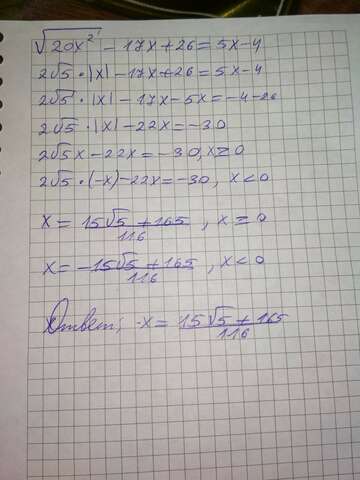 √20x² - 17x + 26 = 5x - 4
2√5 · |x| - 17x + 26 = 5x - 4
2√5 · |x| - 17x - 5x = -4 - 26
2√5 · |x| - 22x = -30
2√5x - 22x = -30, x ≥ 0
2√5 · (-x) - 22x = -30, x < 0
x = 15√5 + 165 / 116, x ≥ 0
x = -15√5 + 165 / 116, x < 0
Ответ; x = 15√5 + 165 / 116